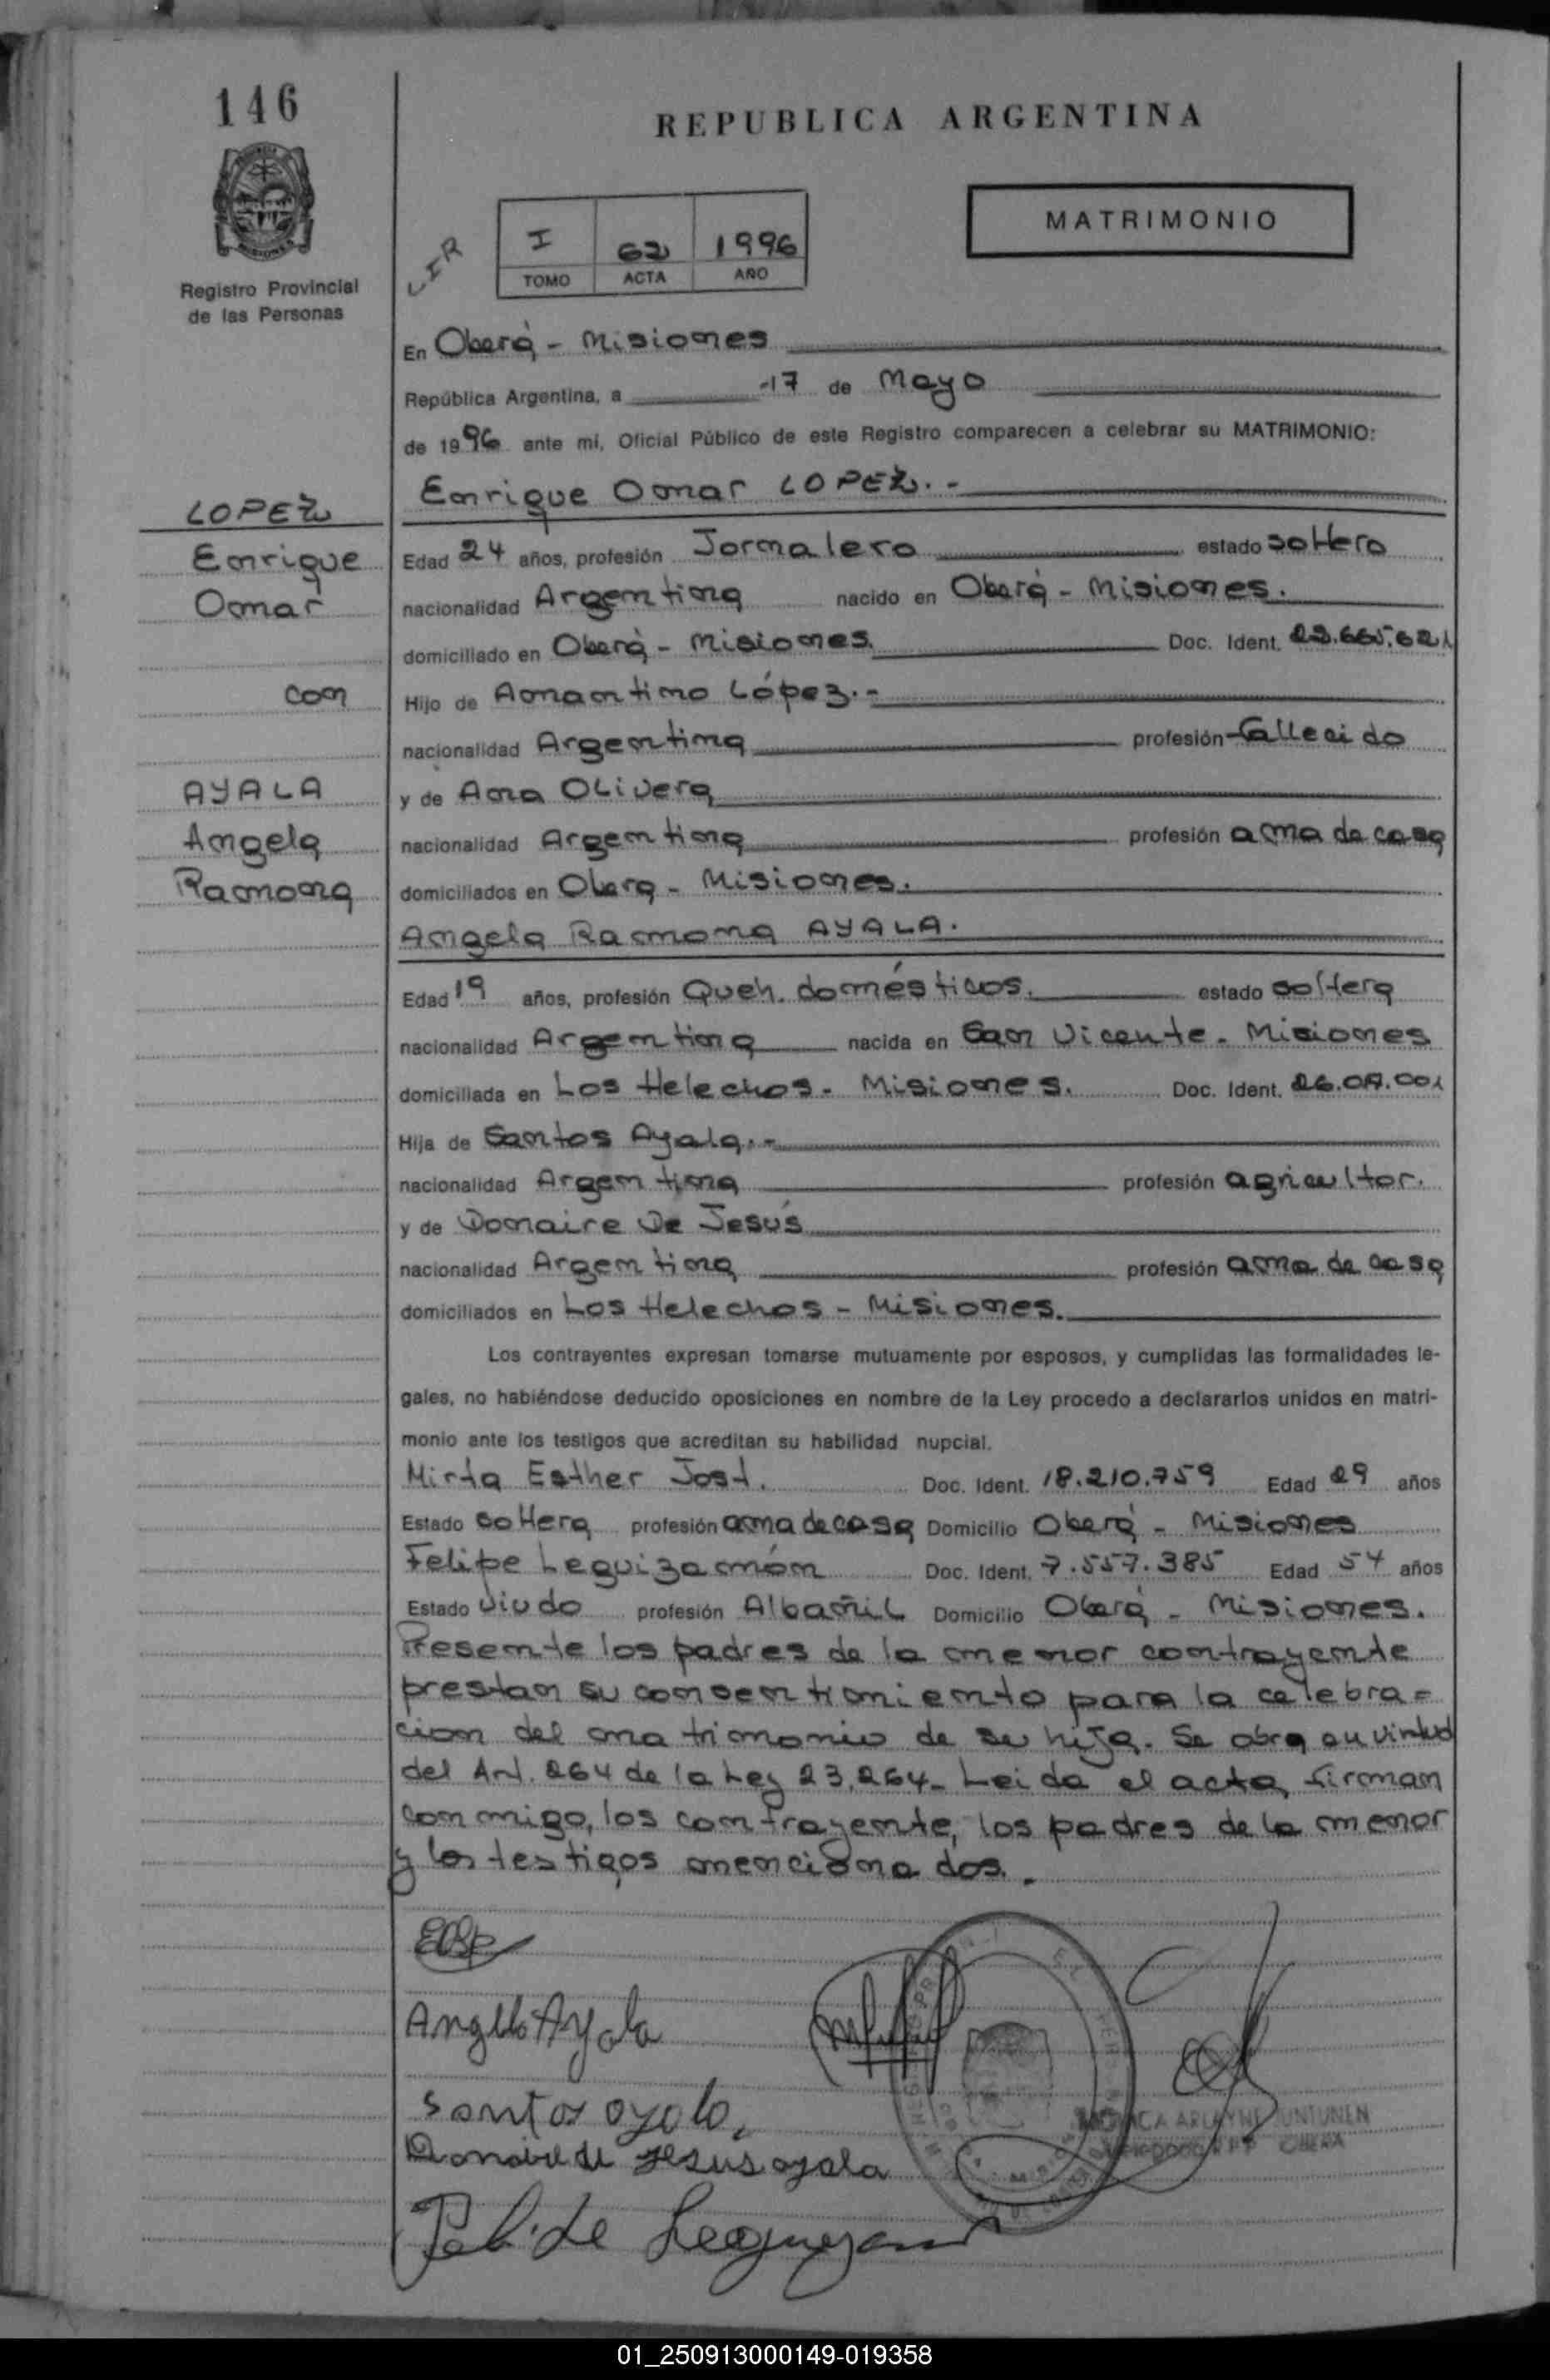 146
REPUBLICA ARGENTINA
MATRIMONIO
Registro Provincial
de las Personas
I 62 1996
TOMO ACTA AÑO
En Oberá - Misiones
República Argentina, a 17 de Mayo
de 1996 ante mí, Oficial Público de este Registro comparecen a celebrar su MATRIMONIO:
Enrique Omar LOPEZ.-
LOPEZ
Enrique
Omar
con
AYALA
Angela
Ramona
Edad 24 años, profesión Jornalero estado soltero
nacionalidad Argentina nacido en Oberá - Misiones.
domiciliado en Oberá - Misiones. Doc. Ident.
Hijo de Amantino López.-
nacionalidad Argentina profesión fallecido
y de Ana Olivera
nacionalidad Argentina profesión ama de casa
domiciliados en Obera - Misiones.
Angela Ramona AYALA.
Edad 19 años, profesión Queh. domésticos. estado soltera
nacionalidad Argentina nacida en San Vicente - Misiones
domiciliada en Los Helechos - Misiones. Doc. Ident.
Hija de Santos Ayala.-
nacionalidad Argentina profesión agricultor.
y de Donaire De Jesús
nacionalidad Argentina profesión ama de casa
domiciliados en Los Helechos - Misiones.
Los contrayentes expresan tomarse mutuamente por esposos, y cumplidas las formalidades le-
gales, no habiéndose deducido oposiciones en nombre de la Ley procedo a declararlos unidos en matri-
monio ante los testigos que acreditan su habilidad nupcial.
Mirta Esther Jost. Doc. Ident. 18.210.759 Edad 29 años
Estado soltera profesión ama de casa Domicilio Oberá - Misiones
Felipe Leguizamón Doc. Ident. 7.557.385 Edad 54 años
Estado viudo profesión Albañil Domicilio Oberá - Misiones.
Presente los padres de la menor contrayente
prestan su consentimiento para la celebra=
cion del matrimonio de su hija. Se obra en virtud
del Art. 264 de la Ley 23.264- Leida el acta, firman
conmigo, los contrayente, los padres de la menor
y los testigos mencionados.
Ayala
Santos ayala
de Jesus ayala
01_250913000149-019358